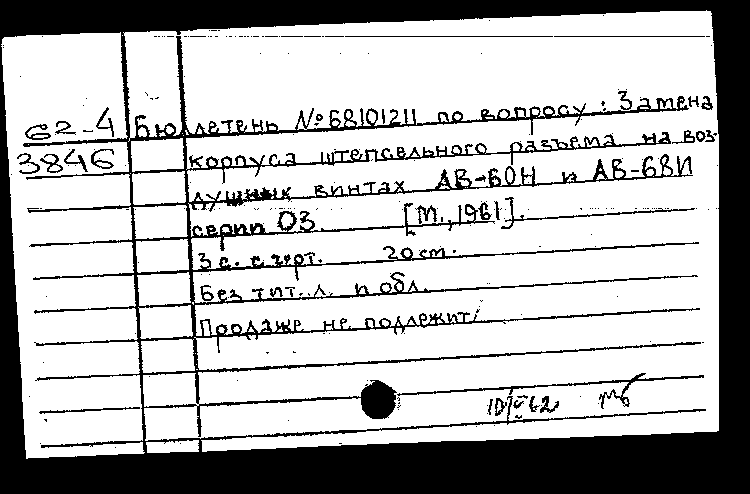 62-4 Бюллетень №68101211 по вопросу: Замена
3846 корпуса штепсельного разъема на воз-
душных винтах АВ-60Н и АВ-68И
серии 03. [М., 1961].
3 с. с черт. 20 см.
Без тит. л. и обл.
Продаже не подлежит